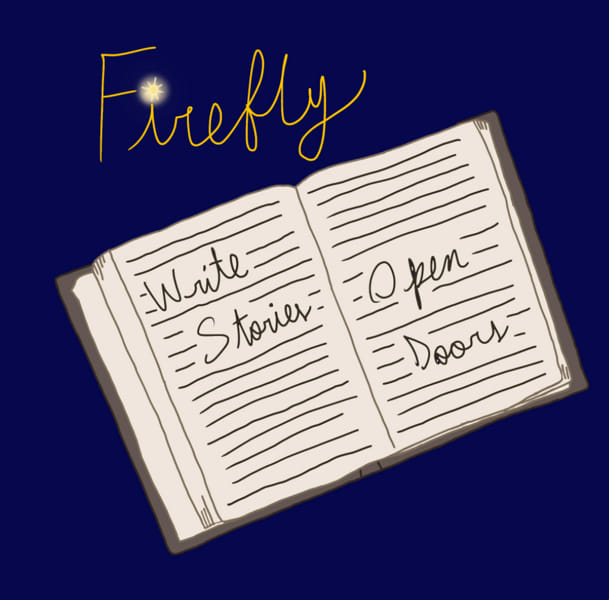 Firefly
Write
Stories
Open
Doors